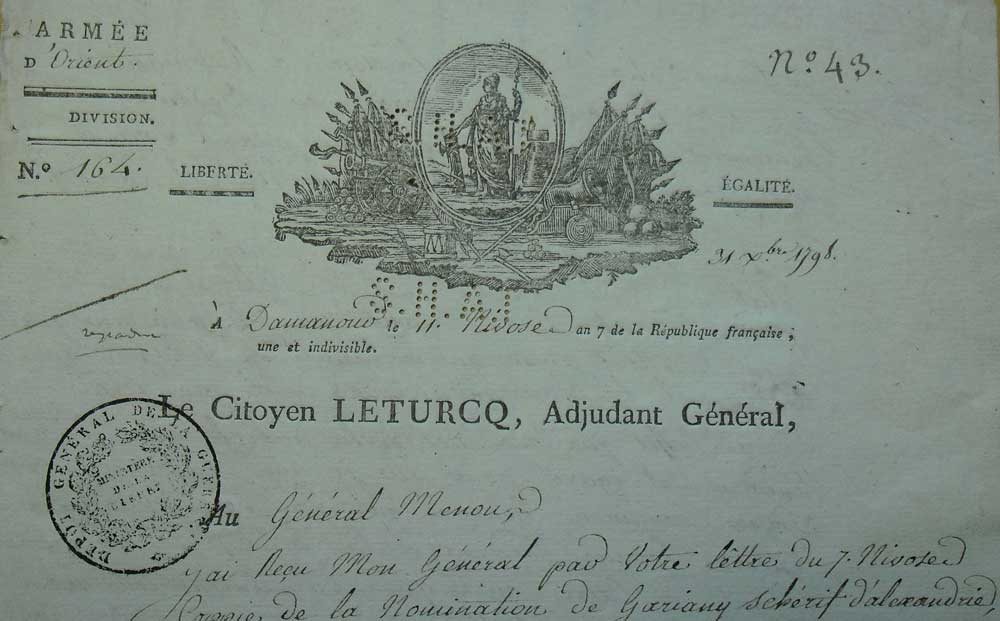 ARMÉE
D'Orient.
DIVISION.
N.º 164.
LIBERTÉ.
ÉGALITÉ.
Nº 43.
31 Xbre 1798.
S.H.A.T
À Damanour le 11. Nivose an 7 de la République française ;
une et indivisible.
Le Citoyen LETURCQ, Adjudant Général,
DEPOT GENÉRAL DE LA GUERRE
MINISTERE
DE LA
GUERRE
Au Général Menou,
J'ai Reçu Mon Général par Votre lêttre du 7. Nivose
Coppie de la Nomination de Gariany schérif d'alexandrie,